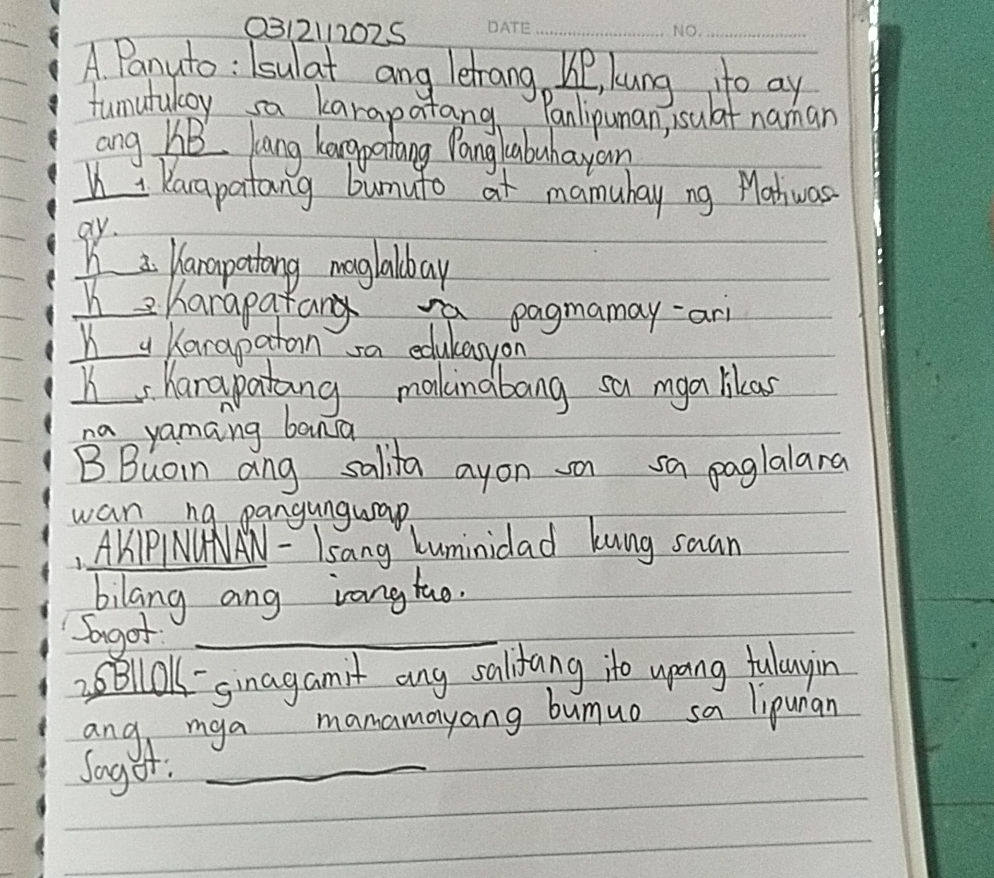 03/21/2025 DATE NO.
A. Panuto: Isulat ang letrang KP, kung ito ay
tumutukoy sa karapatang Panlipunan, isulat naman
ang KB kang karapatang Pangkabuhayan
K 1 Karapatang bumuto at mamuhay ng Matiwas-
ay.
K 2. Karapatang maglakbay
K 3 Karapatang sa pagmamay-ari
K 4 Karapatan sa edukasyon
K 5. Karapatang makinabang sa mga likas
na yamang bansa
B Buoin ang salita ayon sa sa paglalara
wan ng pangungusap
1. AKIPINUHNAN - Isang kuminidad kung saan
bilang ang isang tao.
Sagot:
2 SBIIOK - ginagamit ang salitang ito upang tulungin
ang mga mamamayang bumuo sa lipunan
Sagot: